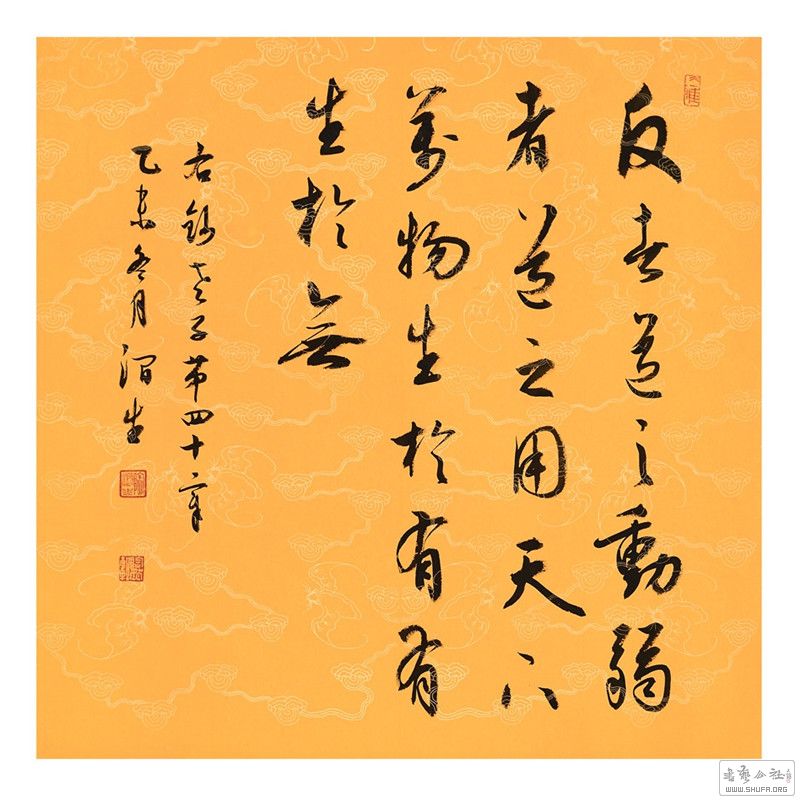 反者道之動弱
者道之用天下
萬物生於有有
生於無
右錄老子第四十章
乙未冬月渭生
書艺公社
WWW.SHUFA.ORG